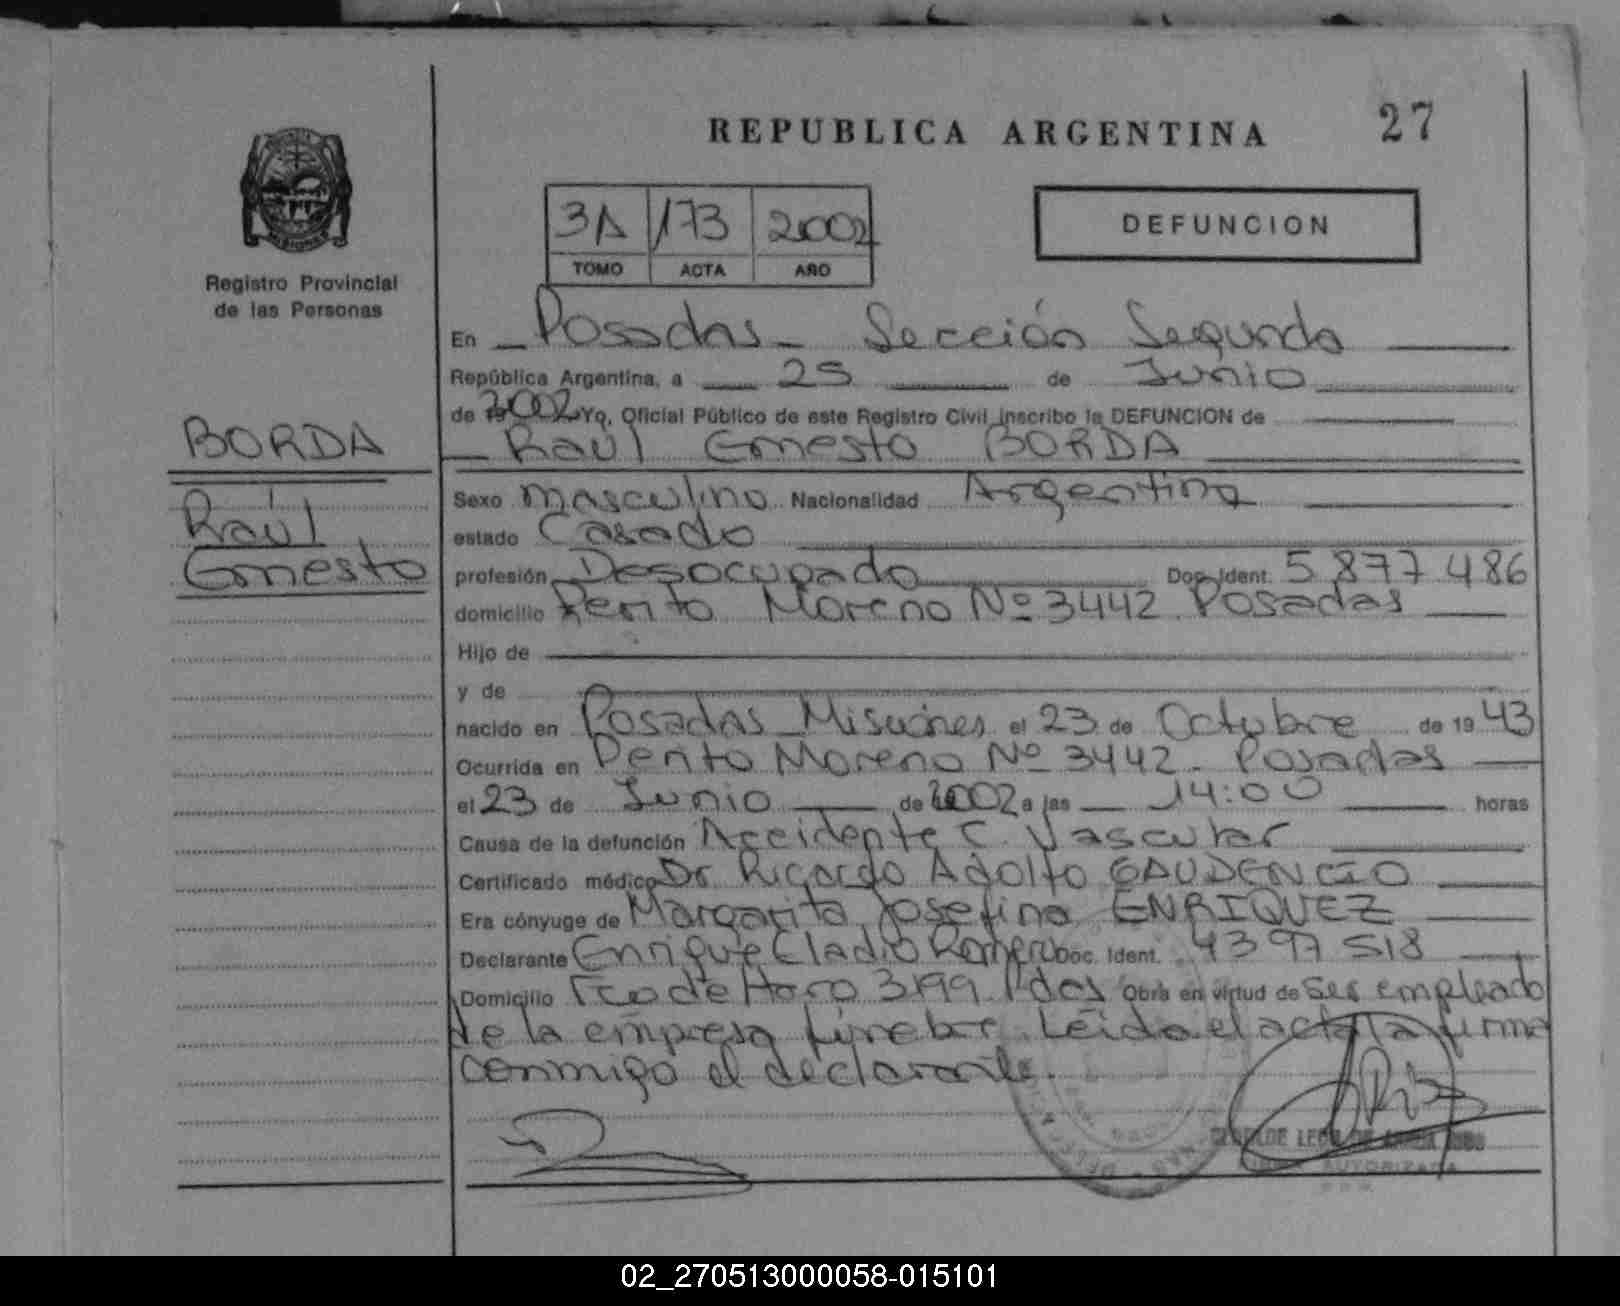 27
REPUBLICA ARGENTINA
3A 173 2002
TOMO ACTA AÑO
DEFUNCION
Registro Provincial
de las Personas
En Posadas - Sección Segunda
República Argentina, a 25 de Junio
de 2002 Yo, Oficial Público de este Registro Civil inscribo la DEFUNCION de
BORDA
Raúl Ernesto BORDA
Raúl
Ernesto
Sexo Masculino Nacionalidad Argentina
estado Casado
profesión Desocupado Doc. Ident. 5 877 486
domicilio Perito Moreno Nº 3442. Posadas
Hijo de
y de
nacido en Posadas Misiones el 23 de Octubre de 1943
Ocurrida en Perito Moreno Nº 3442. Posadas
el 23 de Junio de 2002 a las 14:00 horas
Causa de la defunción Accidente C. Vascular
Certificado médico Dr Ricardo Adolfo GAUDENCIO
Era cónyuge de Margarita Josefina ENRIQUEZ
Declarante Enrique Eladio Romero Doc. Ident. 4397518
Domicilio Fco de Haro 3199 Pdas Obra en virtud de Ser empleado
de la empresa fúnebre. Leida el acta la firma
conmigo el declarante.
AUTORIZADA
02_270513000058-015101